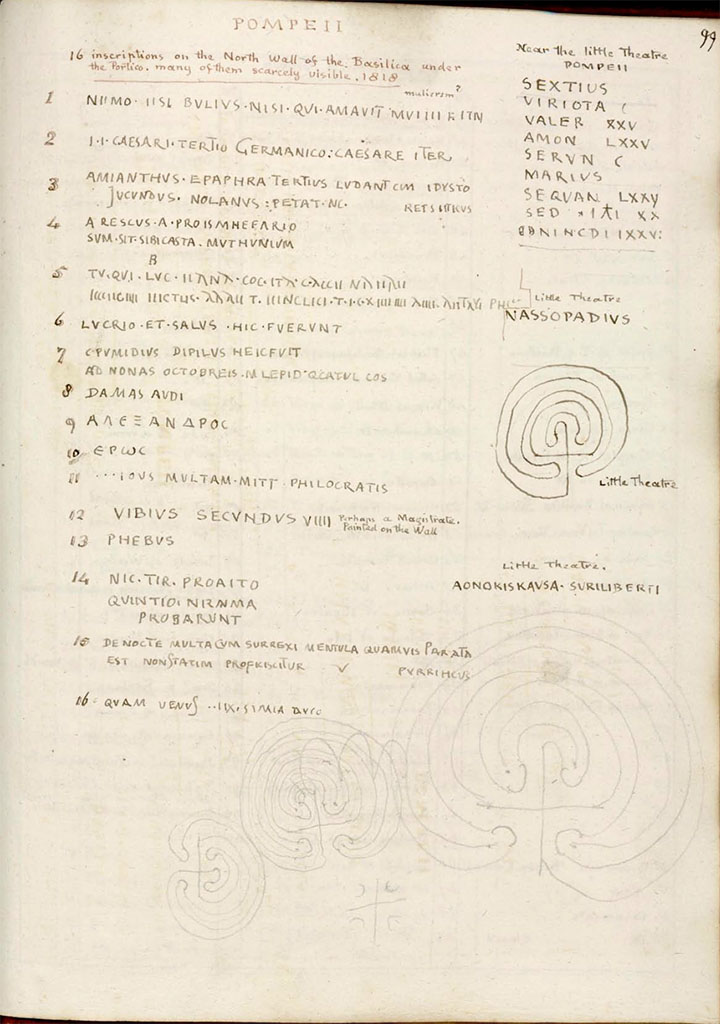 99
POMPEII
16 inscriptions on the North Wall of the Basilica under
the Portico. many of them scarcely visible. 1818
mulierem?
1 BVLIVS · NISI · QUI · AMAVIT
2 I · I · CAESARI · TERTIO GERMANICO : CAESARE ITER
3 AMIANTHVS · EPAPHRA TERTIUS LVDANT CUM IDYSTO
JUCUNDUS · NOLANUS : PETAT · NC.
4 A RESCUS · A · PROISMHEFARIO
SUM · SIT · SIBICASTA · MVTHVNIVM
B
5 TV · QVI · LVC ·
6 LVCRIO · ET · SALVS · HIC · FVERVNT
7 CPVMIDIVS DIPILVS HEICFVIT
AD NONAS OCTOBREIS · M LEPID · QCATVL COS
8 DAMAS AVDI
9 ΑΛΕΞΑΝΔΡΟC
10 ΕΡωC
11 ··· IOVS MULTAM · MITT · PHILOCRATIS
12 VIBIVS SECVNDVS VIIII Perhaps a Magistrate.
Painted on the Wall
13 PHEBUS
14 NIC · TIR · PROAITO
QUINTIOI
PROBARUNT
15 DE NOCTE MULTA CVM SURREXI MENTULA QUAMVIS PARATA
EST NONSTATIM PROFICISCITUR V PYRRIHCUS
16 QVAM VENUS ·· IIX · SIMIA DVCO
Near the little Theatre
POMPEII
SEXTIUS
VIRIOTA (
VALER XXV
AMON LXXV
SERVN C
MARIUS
SEQUAN LXXV
SED XX
Little Theatre
NASSOPADIVS
Little Theatre
Little Theatre.
AONOKISKAUSA · SURILIBERTI